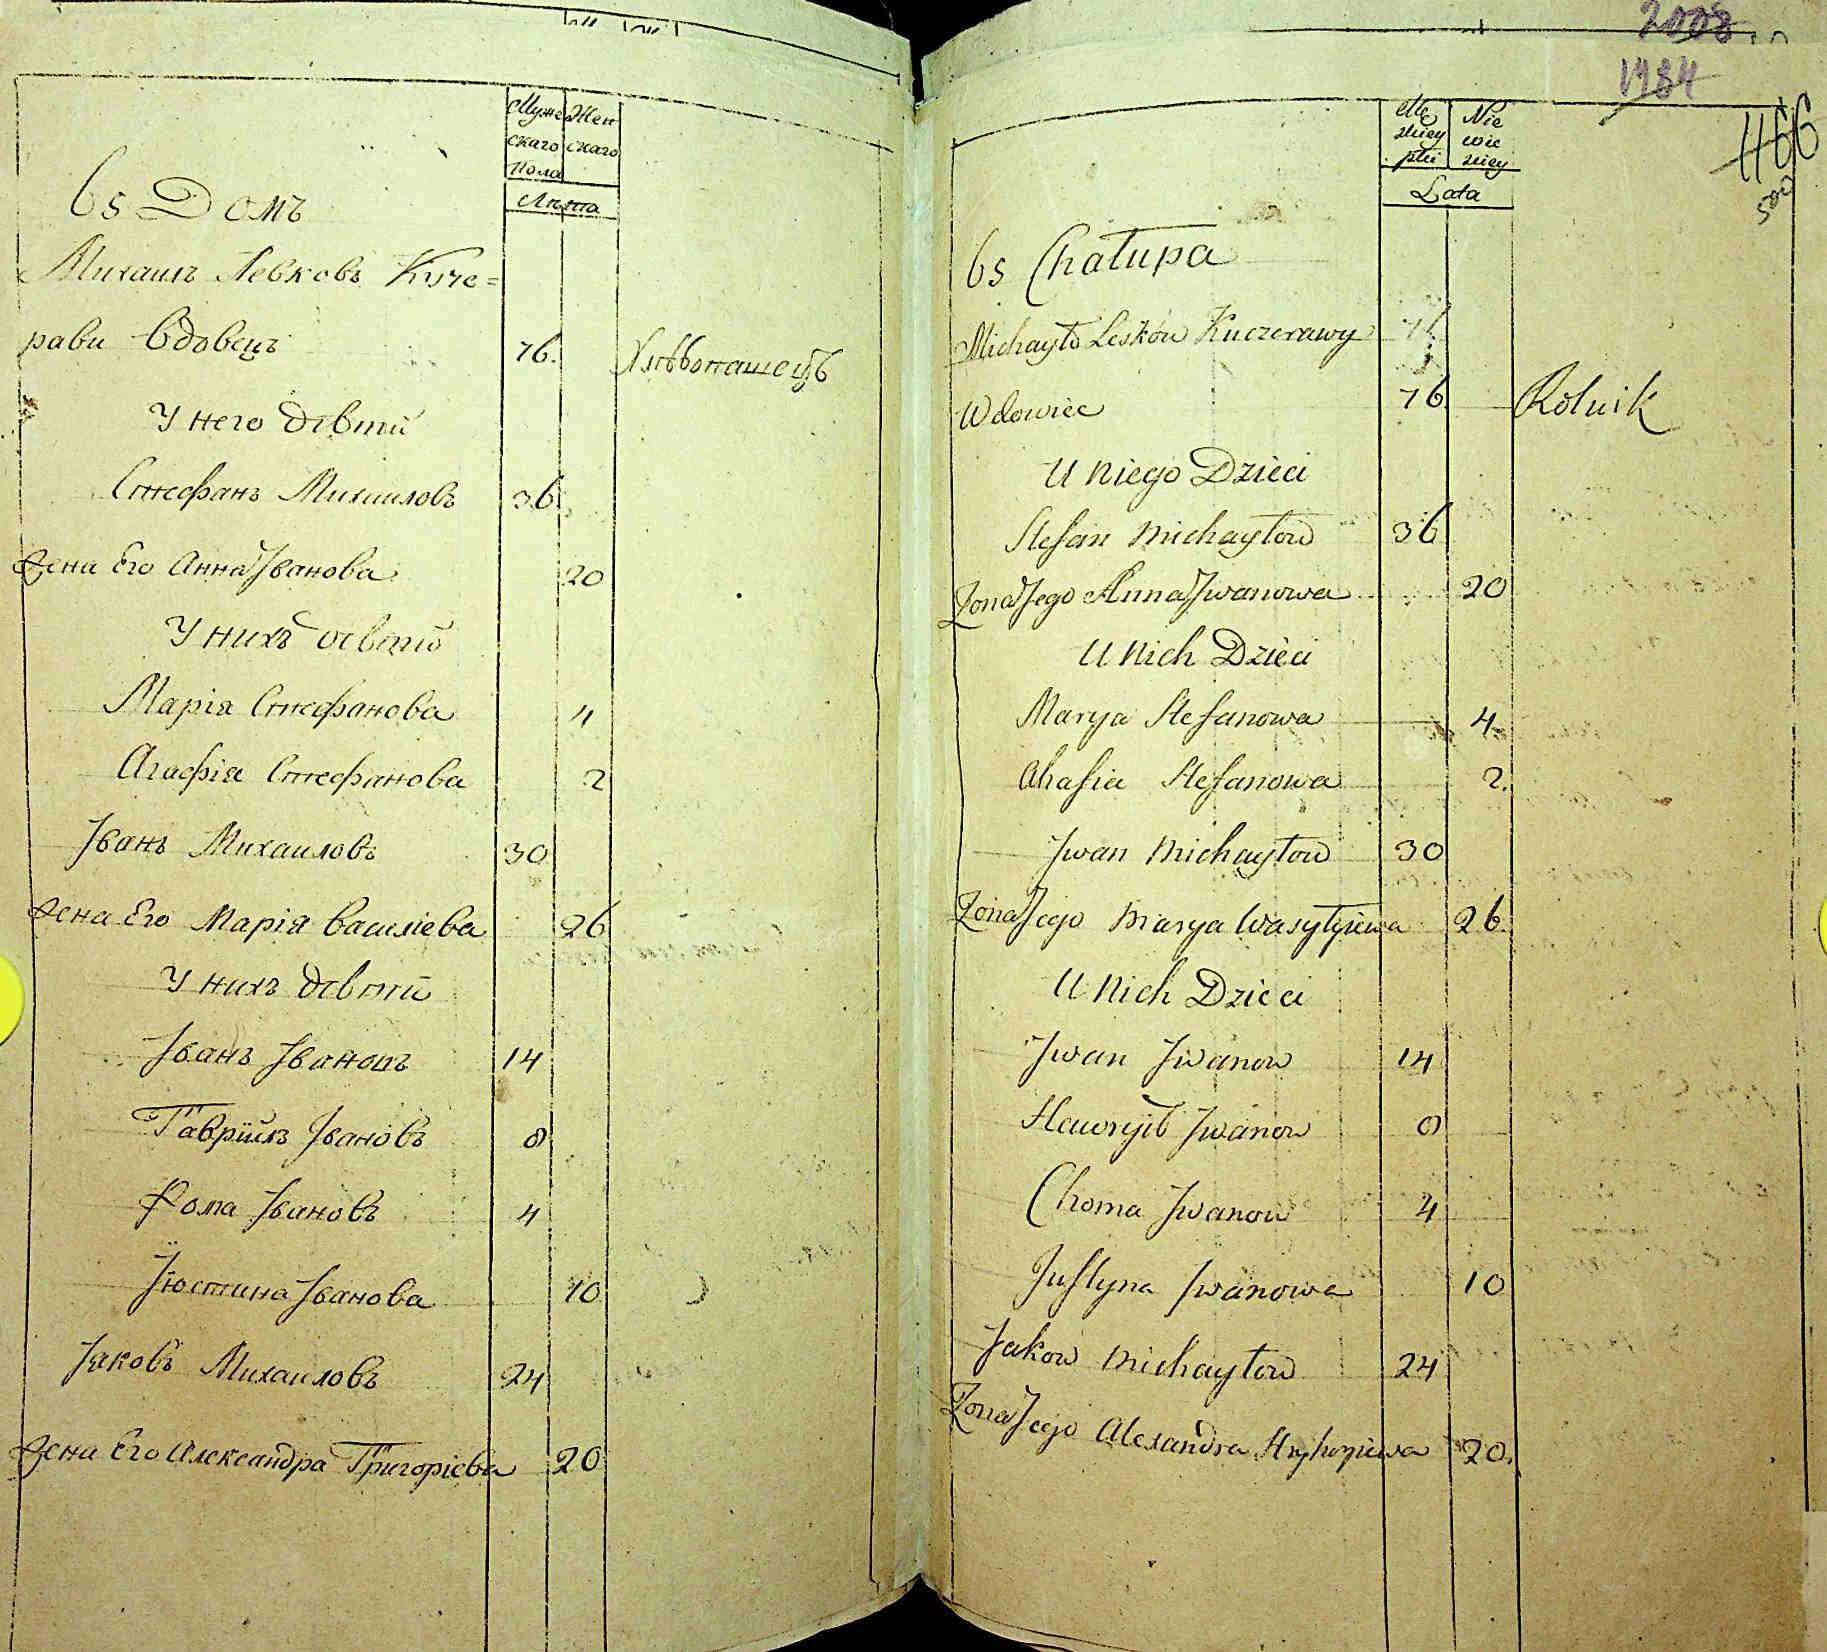 Муже Жен
скаго скаго
пола
Лѣта
65 Домъ
Михаилъ Левковъ Куче=
рави Вдовецъ 76. Хлѣбопашецъ
У него дѣвти
Стефанъ Михаиловъ 36.
Жена Его Анна Іванова 20
У нихъ дѣвти
Марія Стефанова 4
Агафія Стефанова 2
Іванъ Михаиловъ 30
Жена Его Марія Василіева 26
У нихъ дѣвти
Іванъ Івановъ 14
Гавріилъ Івановъ 8
Фома Івановъ 4
Іюстина Іванова 10
Іаковъ Михаиловъ 24
Жена Его Александра Григоріева 20
2008
1984
466
500
Mę Nie
zkiey wie
płci zkiey
Lata
65 Chałupa
Michayło Leśków Kuczerawy
Wdowiec 76 Rolnik
U Niego Dzieci
Stefan Michayłow 36
Żona Jego Anna Jwanowa 20
U Nich Dzieci
Marya Stefanowa 4
Ahafia Stefanowa 2.
Jwan Michayłow 30
Żona Jego Marya Wasylyiewa 26.
U Nich Dzieci
Jwan Jwanow 14
Hawryił Jwanow 8
Choma Jwanow 4
Justyna Jwanowa 10
Jakow Michayłow 24
Żona Jego Alexandra Hryhoryiewa 20.